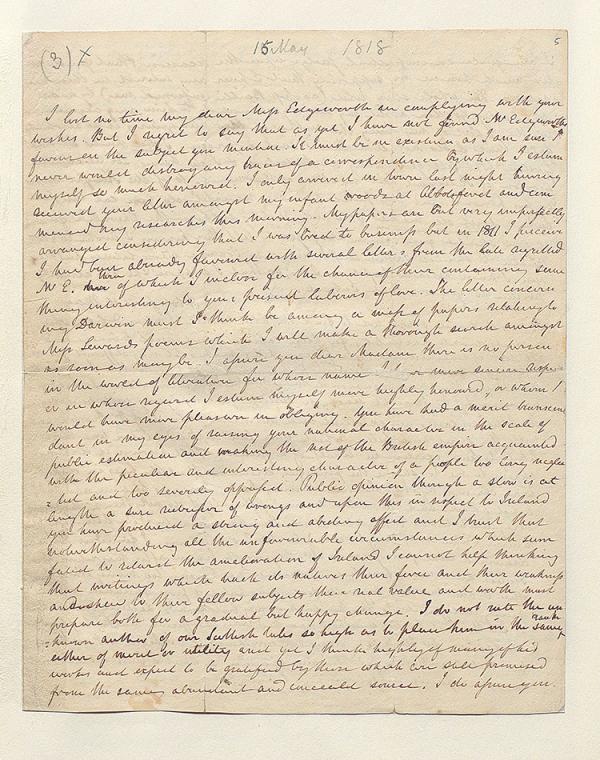 (3) x 15 May 1818 5
I lost no time my dear Miss Edgeworth in complying with your
wishes. But I regret to say that as yet I have not found Mr Edgeworths
favour on the subject you mention. It must be in existence as I am sure I
never would destroy any traces of a correspondence by which I esteem
myself so much honoured. I only arrived in town last night having
received your letter amongst my infant woods at Abbotsford and com
menced my researches this morning. My papers are but very imperfectly
arranged considering that I was bred to business but in 1811 I perceive
I had been already favoured with several letters from the late regretted
Mr E. three of which I inclose for the chance of their containing some
thing interesting to your present labours of love. The letter concern
ing Darwin must I think be among a mass of papers relating to
Miss Sewards poems which I will make a thorough search amongst
as soon as may be. I assure you dear Madam there is no person
in the world of literature for whose name I have more sincere respect
or in whose regard I esteem myself more highly honoured, or whom I
would have more pleasure in obliging. You have had a merit transcen
dant in my eyes of raising your national character in the scale of
public estimation and making the rest of the British empire acquainted
with the peculiar and interesting character of a people too long neglec
=ted and too severely oppressed. Public opinion though a slow is at
length a sure redresser of wrongs and upon this in respect to Ireland
you have produced a strong and abiding effect and I trust that
notwithstanding all the unfavourable circumstances which seem
fated to retard the amelioration of Ireland I cannot help thinking
that writings which teach its natives their force and their weakness
and shew to their fellow subjects their real value and worth must
prepare both for a gradual but happy change. I do not rate the un
=known author of our Scottish tales so high as to place him in the same rank
either of merit or utility and yet I think highly of many of his
works and expect to be gratified by those which are still promised
from the same abundant and concealed source. I do assure you